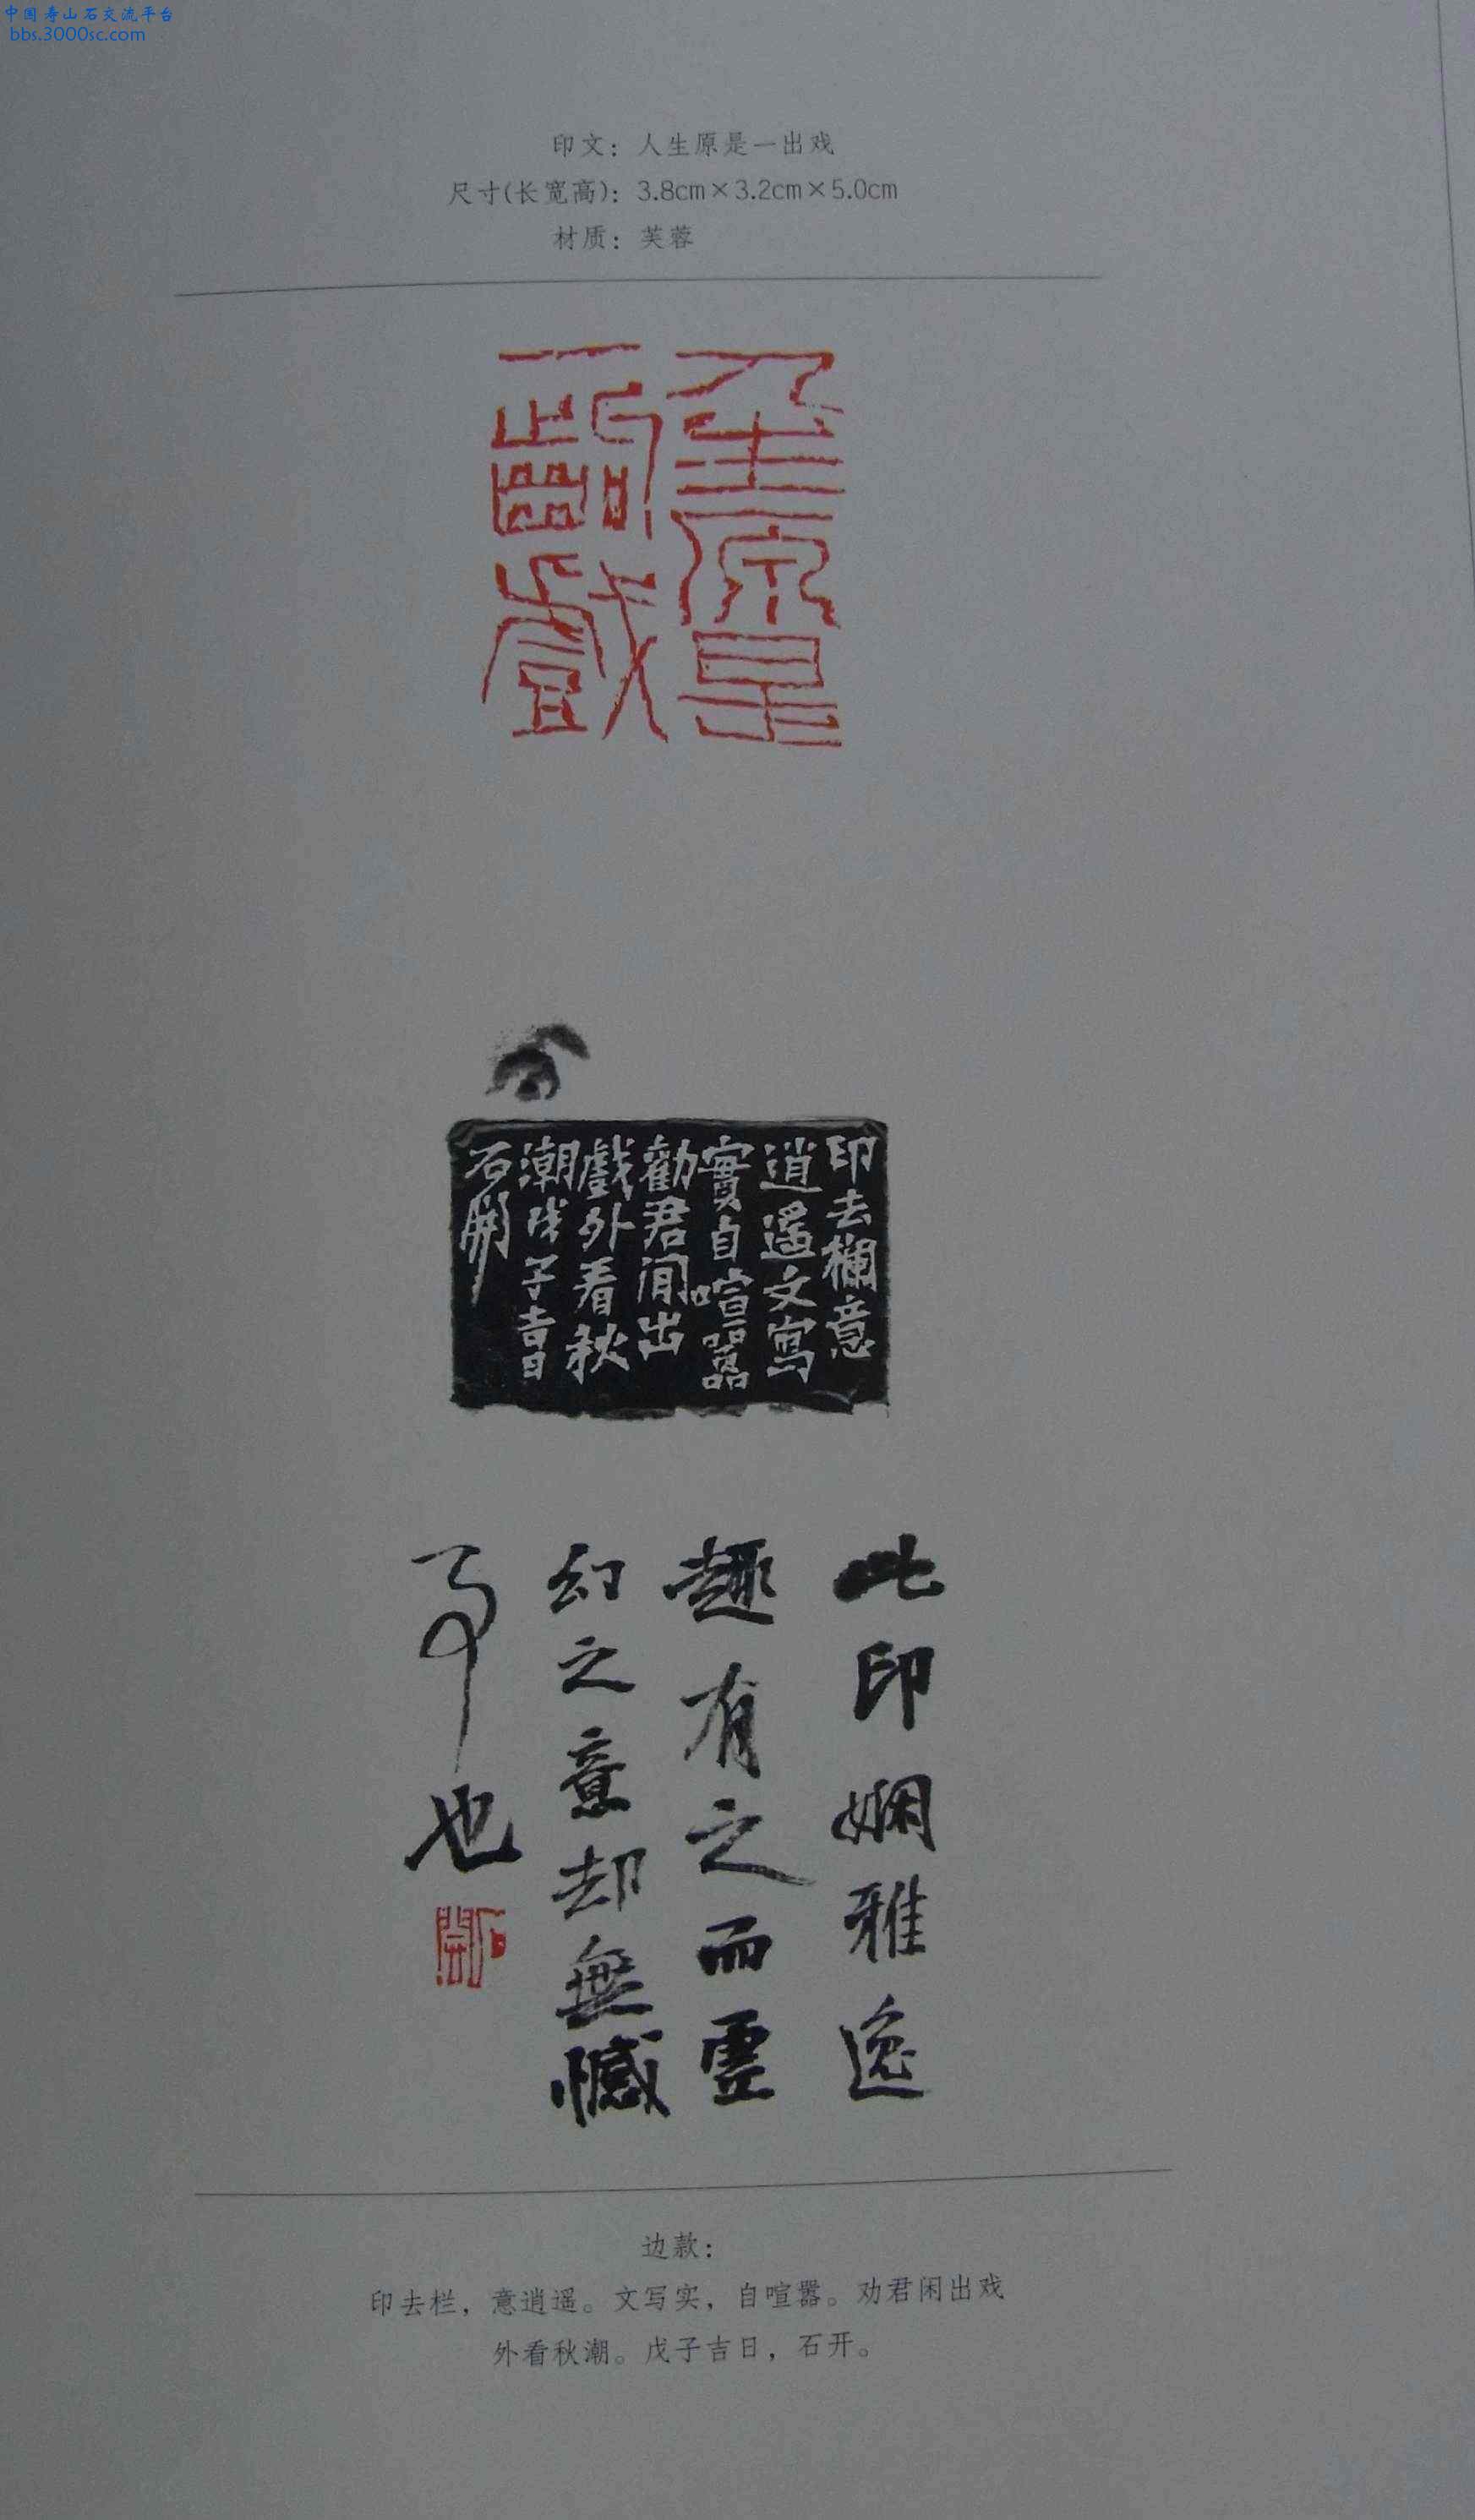 中国寿山石交流平台
bbs.3000sc.com
印文：人生原是一出戏
尺寸(长宽高)：3.8cm×3.2cm×5.0cm
材质：芙蓉
人生原是
一齣戲
印去欄意
逍遙文寫
實自喧囂
勸君閒出
戲外看秋
潮戊子吉日
石開
此印嫻雅逸
趣有之而靈
幻之意却無憾
事也
石開
边款：
印去栏，意逍遥。文写实，自喧嚣。劝君闲出戏
外看秋潮。戊子吉日，石开。